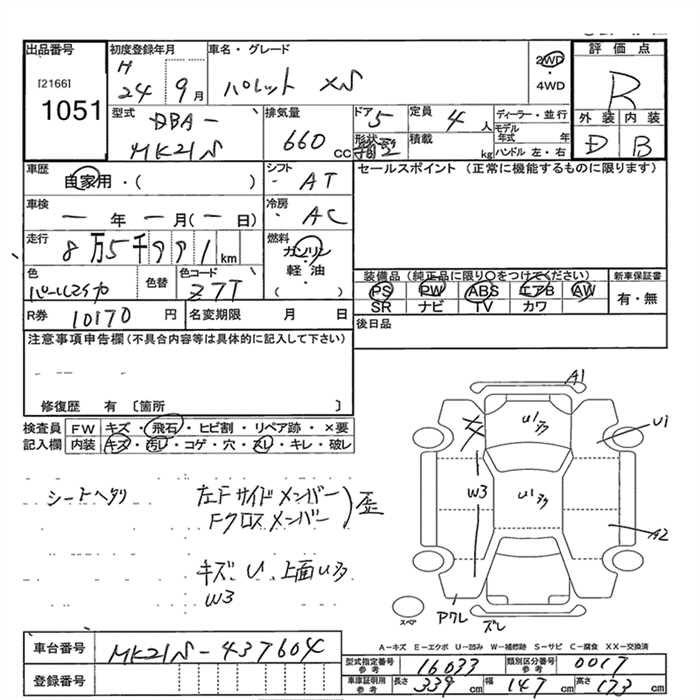 出品番号
[2166]
1051
初度登録年月
H
24 9月
車名・グレード
パレット XS
2WD
・
4WD
評価点
R
外装 内装
D B
型式
DBA-
MK21S
排気量
660 cc
ドア 5
形状
定員 4 人
積載 kg
ディーラー・並行
モデル年式 年
ハンドル 左・右
車歴
自家用・( )
シフト
AT
セールスポイント (正常に機能するものに限ります)
車検
― 年 ― 月(― 日)
冷房
AC
走行
8万5千991km
燃料
ガソリン
・
軽油
( )
色
色替
色コード
Z7T
装備品(純正品に限り○をつけてください)
PS PW ABS エアB AW
SR ナビ TV カワ
新車保証書
有・無
R券 10170 円
名変期限 月 日
後日品
注意事項申告欄(不具合内容等は具体的に記入して下さい)
修復歴 有 〔箇所 〕
検査員記入欄
FW キズ・飛石・ヒビ割・リペア跡・×要
内装 キズ・汚レ・コゲ・穴・スレ・キレ・破レ
シートヘタリ
左Fサイドメンバー
Fクロスメンバー
) 歪
キズ、U、上面U多
W3
A1
U1
U1多
W3
U1多
A2
スペア
アワレ
ズレ
A-キズ E-エクボ U-凹み W-補修跡 S-サビ C-腐食 XX-交換済
車台番号 MK21S-437604
登録番号
型式指定番号 参考 16633
類別区分番号 参考 0017
車庫証明用 参考 長さ 339 cm 幅 147 cm 高さ 173 cm